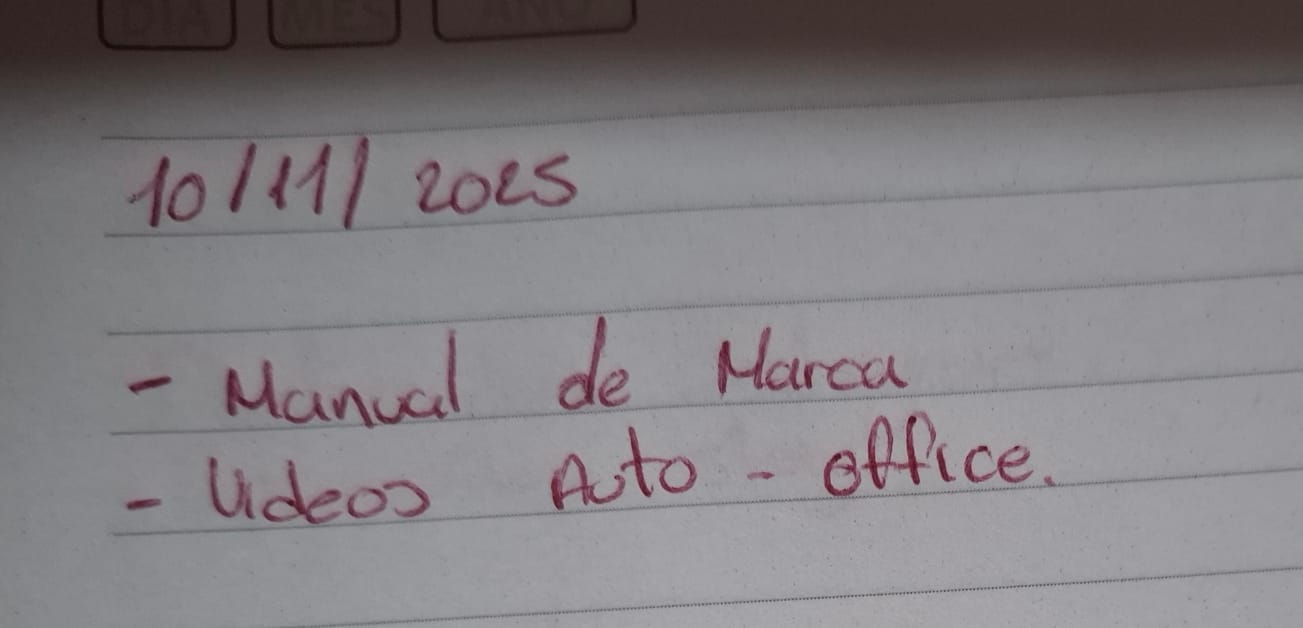 DIA MES AÑO
10/11/2025
- Manual de Marca
- Videos Auto - office.